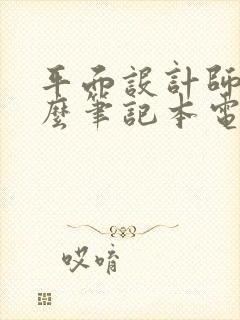 平面設計師
麼筆記本電
哎唷